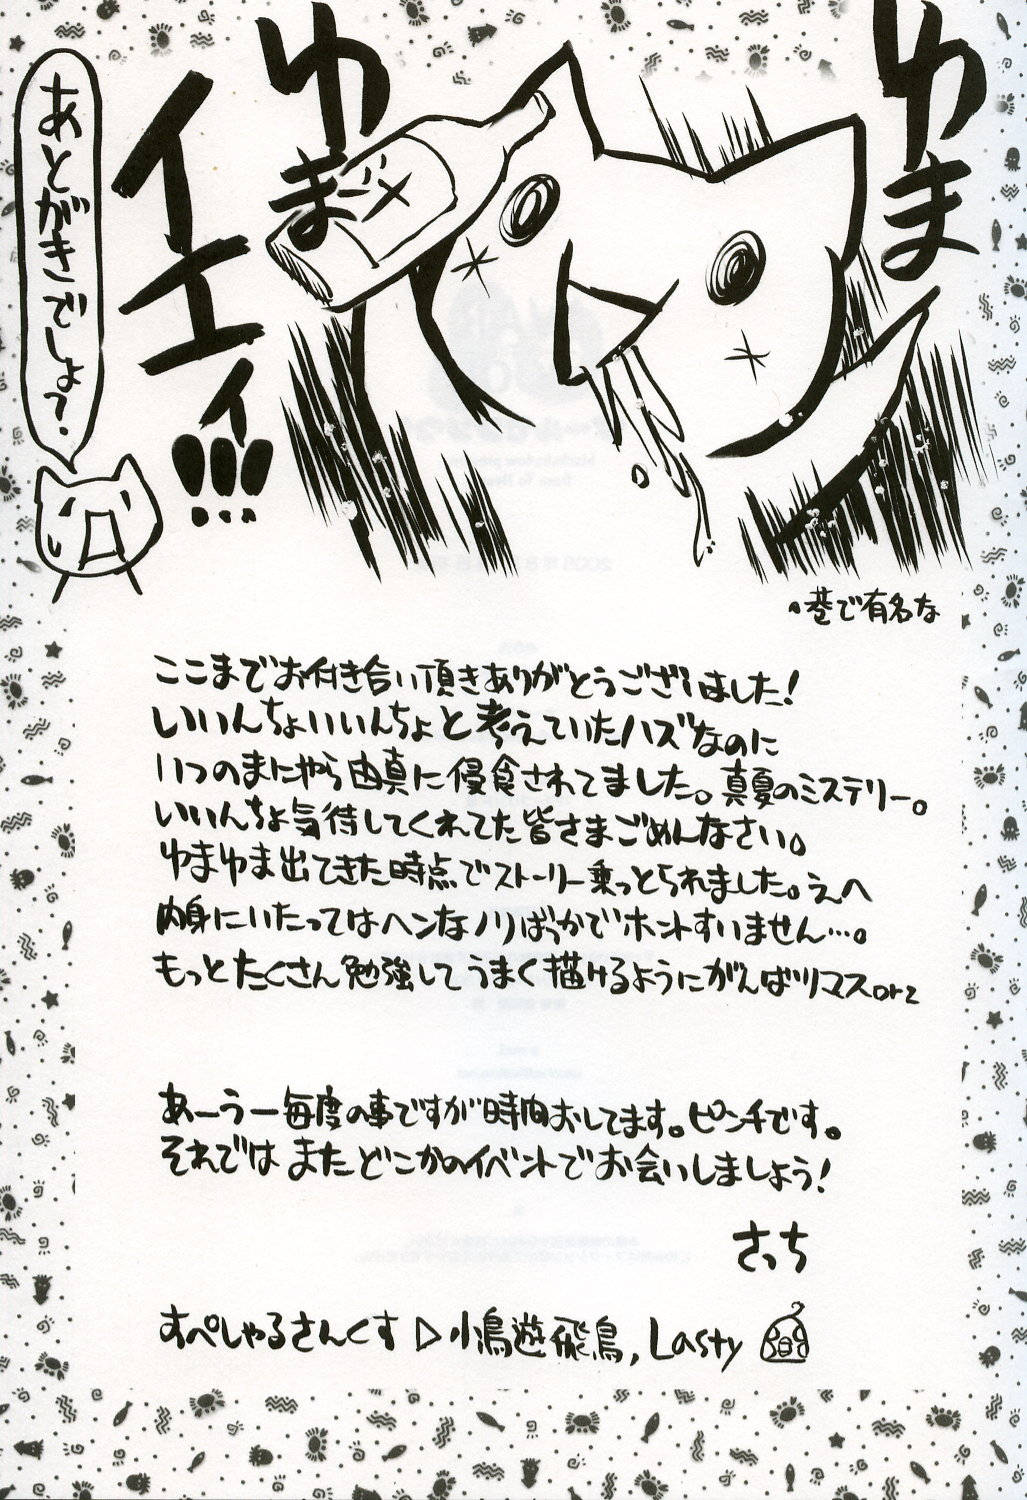 ゆま
ゆま
イエィ!!!
ジメ
あとがきでしょ?
・巷で有名な
ここまでお付き合い頂きありがとうございました!
いいんちょいいんちょと考えていたハズなのに
いつのまにやら由真に侵食されてました。真夏のミステリー。
いいんちょ気待してくれてた皆さまごめんなさい。
ゆまゆま出てきた時点でストーリー乗っとられました。えへ
内身にいたってはヘンなノリばっかでホントすいません…。
もっとたくさん勉強してうまく描けるようにがんばツマスorz
あーうー毎度の事ですが時間おしてます。ピンチです。
それではまたどこかのイベントでお会いしましょう!
さっち
すぺしゃるさんくす▷小鳥遊飛鳥, Lasty